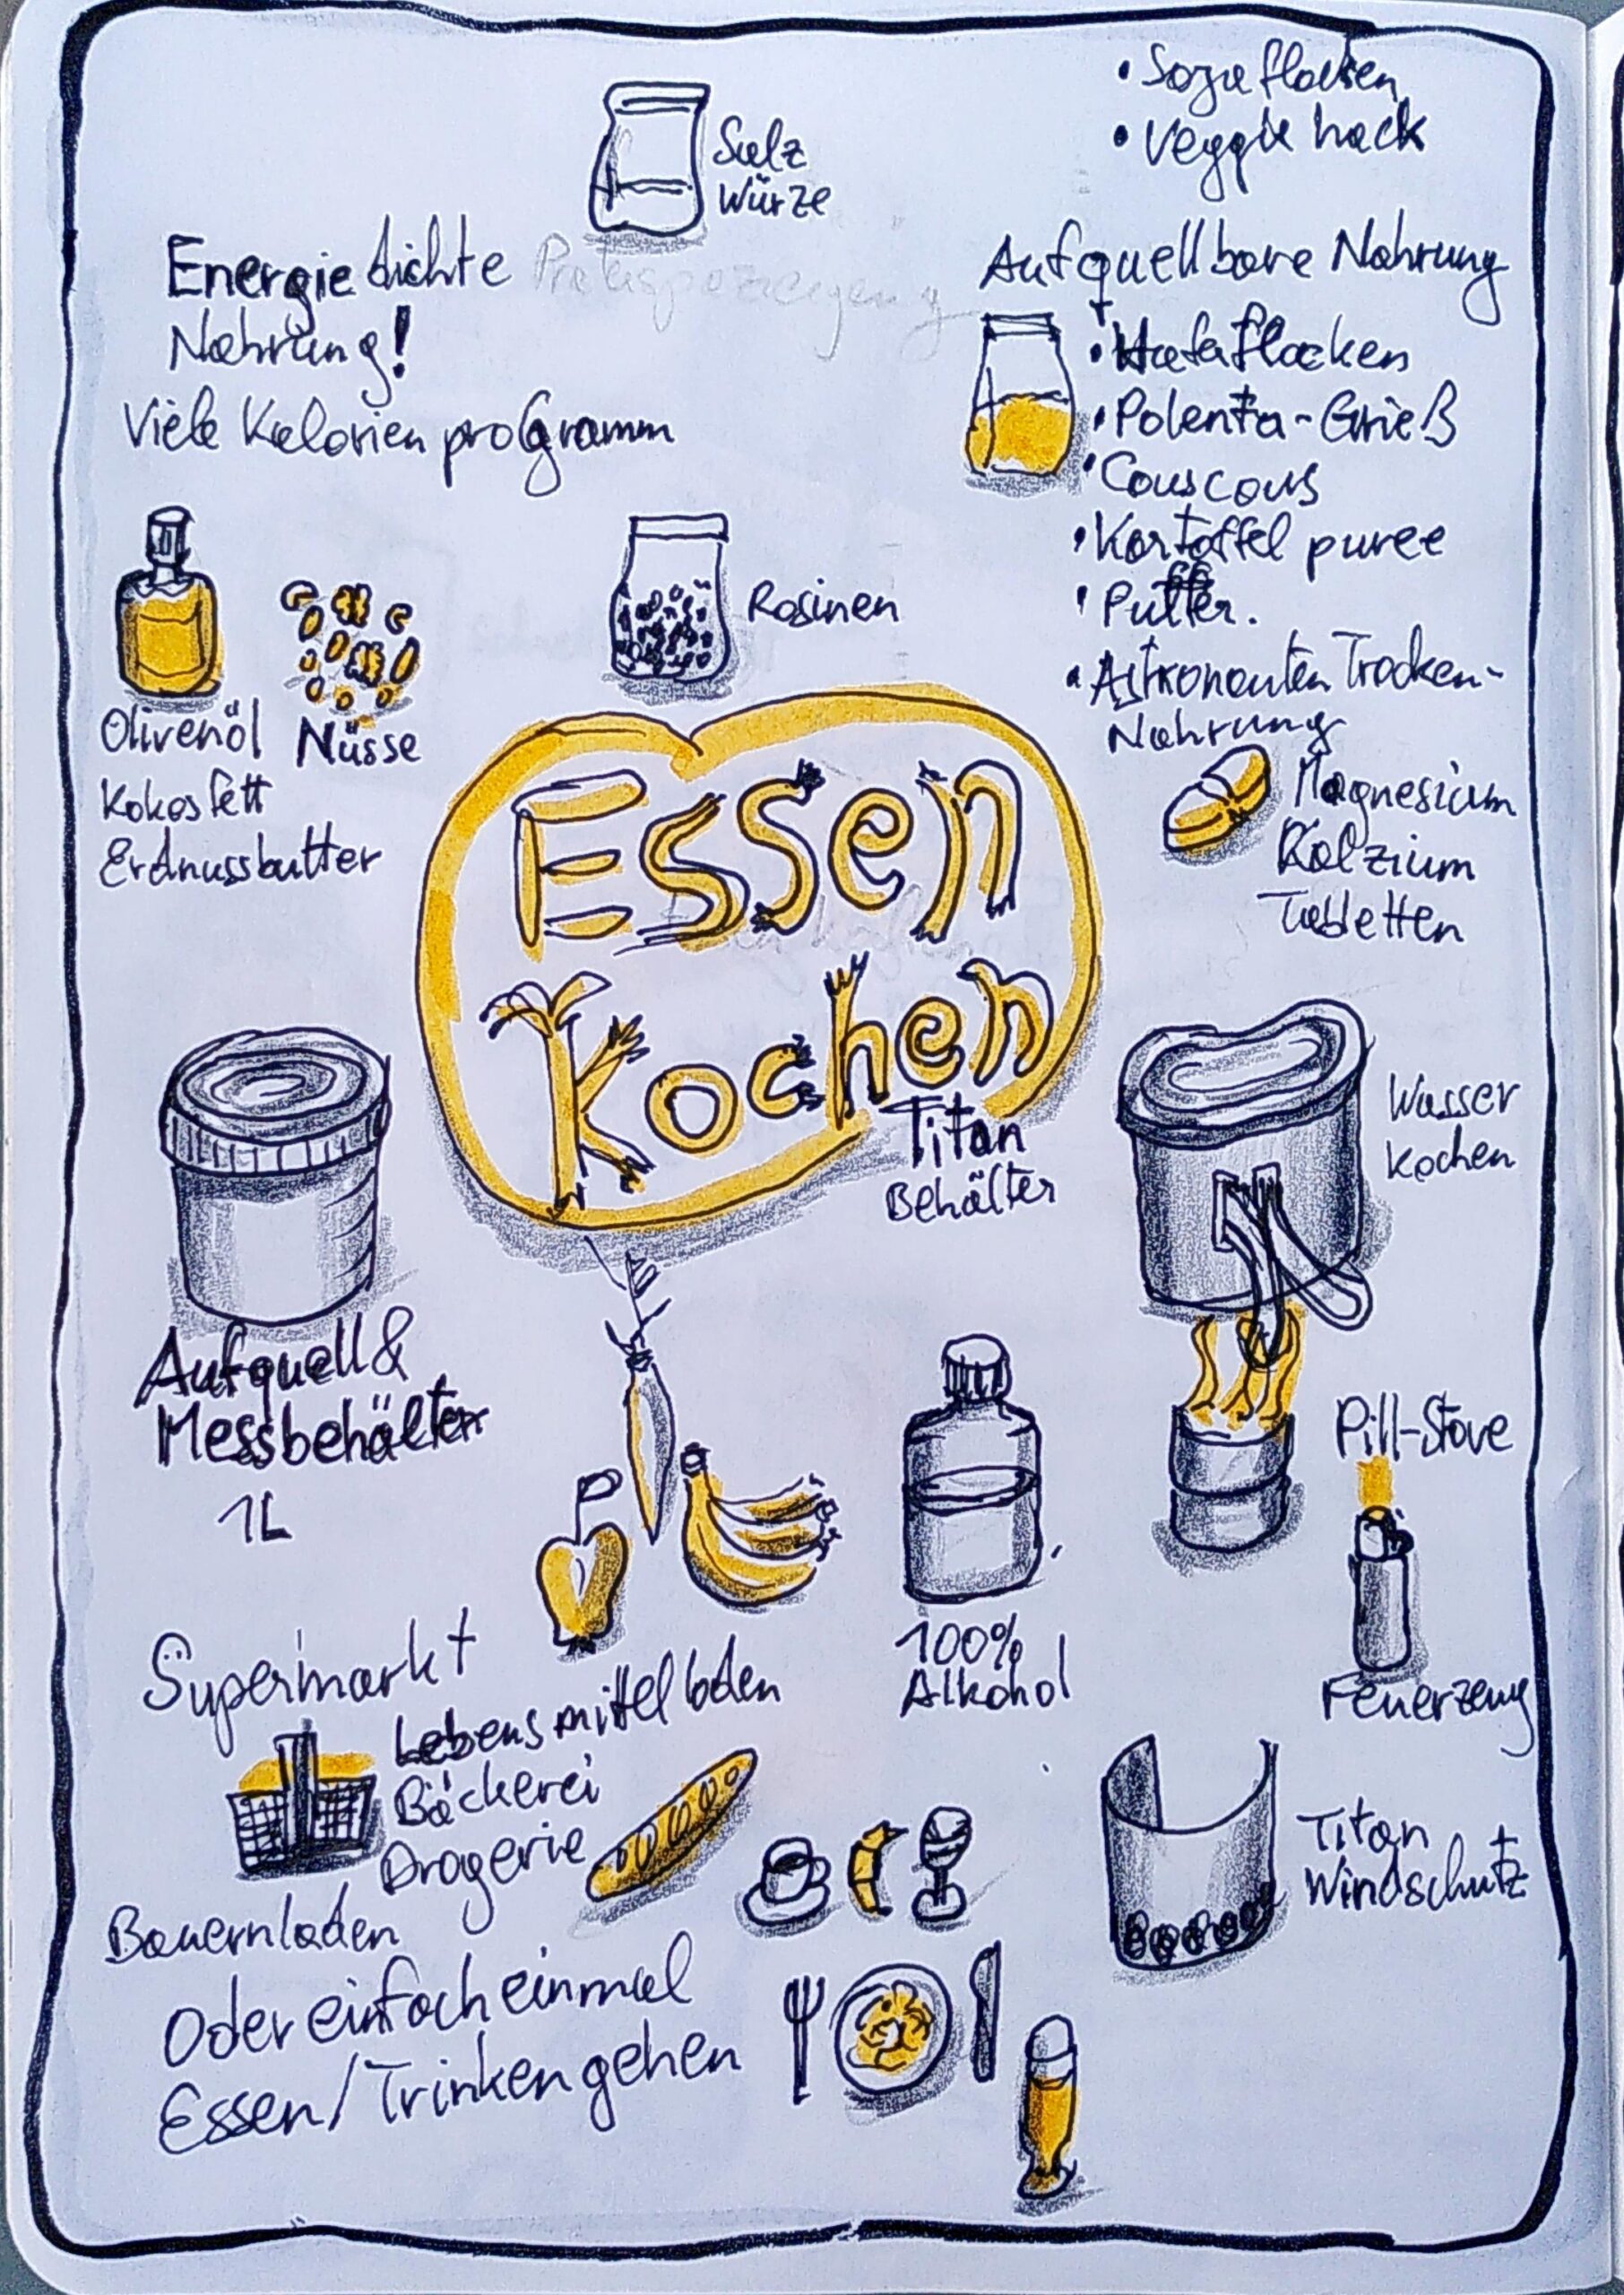 • Sojaflocken
• Veggie hack
Salz
Würze
Energiedichte
Nahrung!
Viele Kalorien pro Gramm
Aufquellbare Nahrung
• Haferflocken
• Polenta-Grieß
• Couscous
• Kartoffel puree
• Puffer.
• Astronauten Trocken-
Nahrung
Magnesium
Kalzium
Tabletten
Olivenöl
Nüsse
Kokosfett
Erdnussbutter
Rosinen
Essen
Kochen
Titan
Behälter
Wasser
Kochen
Aufquell &
Messbehälter
1L
Pill-Stove
Feuerzeug
100%
Alkohol
Supermarkt
Lebensmittelladen
Bäckerei
Drogerie
Bauernladen
Titan
Windschutz
Oder einfach einmal
Essen/Trinken gehen